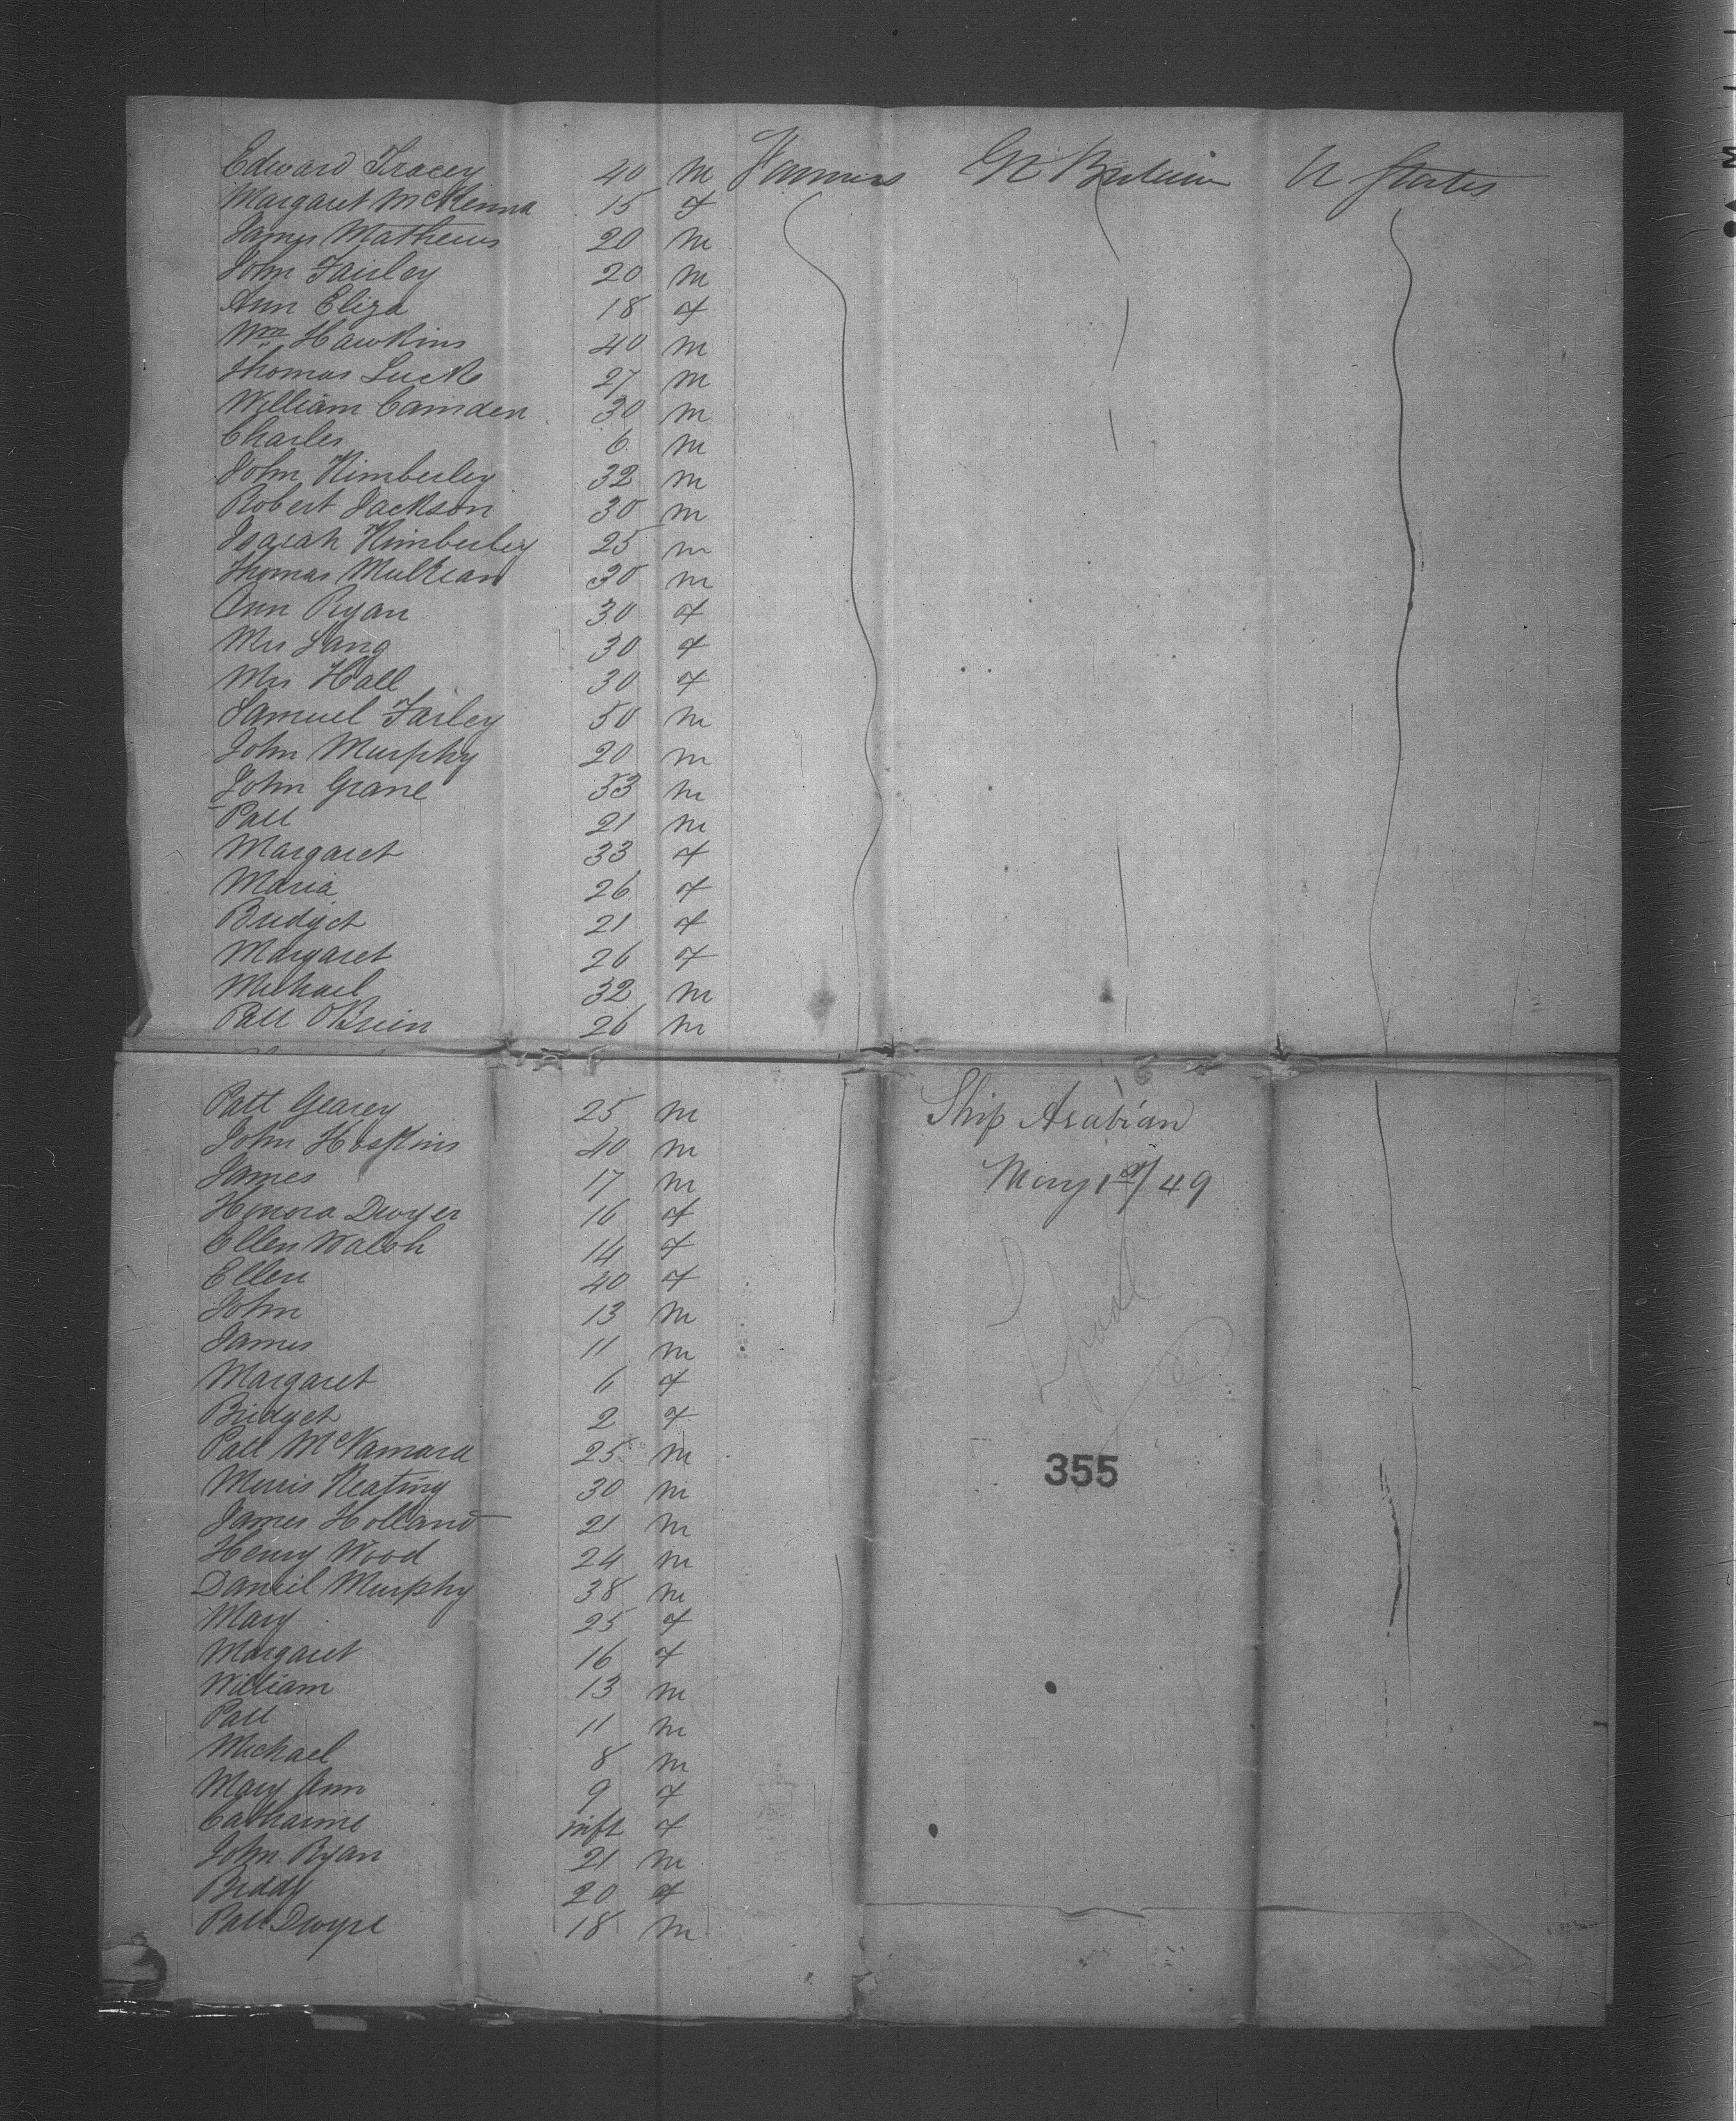 Edward Tracey 40 m Farmers Gt Britain U States
Margaret McKenna 15 f
James Mathews 20 m
John Fairley 20 m
Ann Eliza 18 f
Wm Hawkins 40 m
Thomas Luck 27 m
William Camden 30 m
Charles 6 m
John Kimberley 32 m
Robert Jackson 30 m
Isaiah Kimberley 25 m
Thomas Mulkean 30 m
Ann Ryan 30 f
Mrs Lang 30 f
Mrs Hall 30 f
Samuel Farley 50 m
John Murphy 20 m
John Grane 33 m
Patt 21 m
Margaret 33 f
Maria 26 f
Bridget 21 f
Margaret 26 f
Michael 32 m
Patt OBrien 26 m
Patt Gearey 25 m
Ship Arabian
John Hoskins 40 m
James 17 m
May 1st/49
Honora Dwyer 16 f
Ellen Walsh 14 f
Ellen 40 f
John 13 m
James 11 m
Margaret 6 f
Bridget 2 f
Patt McNamara 25 m
355
Morris Keating 30 m
James Holland 21 m
Henry Wood 24 m
Daniel Murphy 38 m
Mary 25 f
Margaret 16 f
William 13 m
Patt 11 m
Michael 8 m
Mary Ann 9 f
Catharine inft f
John Ryan 21 m
Biddy 20 f
Patt Dwyre 18 m